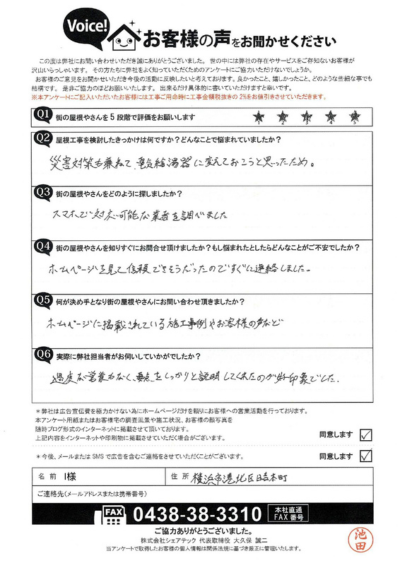 Voice!
お客様の声をお聞かせください
この度は弊社にお問い合わせいただき誠にありがとうございました。世の中には弊社の存在やサービスをご存知ないお客様が
沢山いらっしゃいます。その方たちに弊社をよく知っていただくためのアンケートにご協力いただけないでしょうか。
お客様のご意見をお聞かせいただき今後の活動に反映したいと考えております。良かったこと、嬉しかったこと、どのような些細な事でも
結構です。是非ご協力のほどお願いいたします。出来るだけ具体的に書いていただけますと幸いです。
※本アンケートにご記入いただいたお客様には工事ご用命時に工事金額税抜きの2%をお値引きさせていただきます。
Q1 街の屋根やさんを5段階で評価をお願いします ★ ★ ★ ★ ★
Q2 屋根工事を検討したきっかけは何ですか？どんなことで悩まれていましたか？
災害対策も兼ねて、電気給湯器に変えておこうと思ったため。
Q3 街の屋根やさんをどのように探しましたか？
スマホで対応可能な業者を調べました
Q4 街の屋根やさんを知りすぐにお問合せ頂けましたか？もし悩まれたとしたらどんなことがご不安でしたか？
ホームページを見て信頼できそうだったのですぐに連絡しました。
Q5 何が決め手となり街の屋根やさんにお問い合わせ頂きましたか？
ホームページに掲載されている施工事例やお客様の声など
Q6 実際に弊社担当者がお伺いしていかがでしたか？
過度な営業もなく、要点をしっかりと説明してくれたのが好印象でした。
＊弊社は広告宣伝費を極力かけない為にホームページだけを頼りにお客様への営業活動を行っております。
本アンケート用紙またはお客様宅の調査風景や施工状況、お客様の顔写真を
随時ブログ形式のインターネットに掲載させて頂いております。
上記内容をインターネットや印刷物に掲載させていただく場合がございます。
同意します ☑
＊今後、メールまたはSMSで広告を含むご連絡をさせていただくことがございます。
同意します ☑
名前 I様 住所 横浜市港北区日吉本町
ご連絡先(メールアドレスまたは携帯番号)
FAX 0438-38-3310 本社直通 FAX番号
ご協力ありがとうございました。
株式会社シェアテック 代表取締役 大久保 誠二
当アンケートで取得したお客様の個人情報は関係法規に基づき厳正に管理いたします。
池田